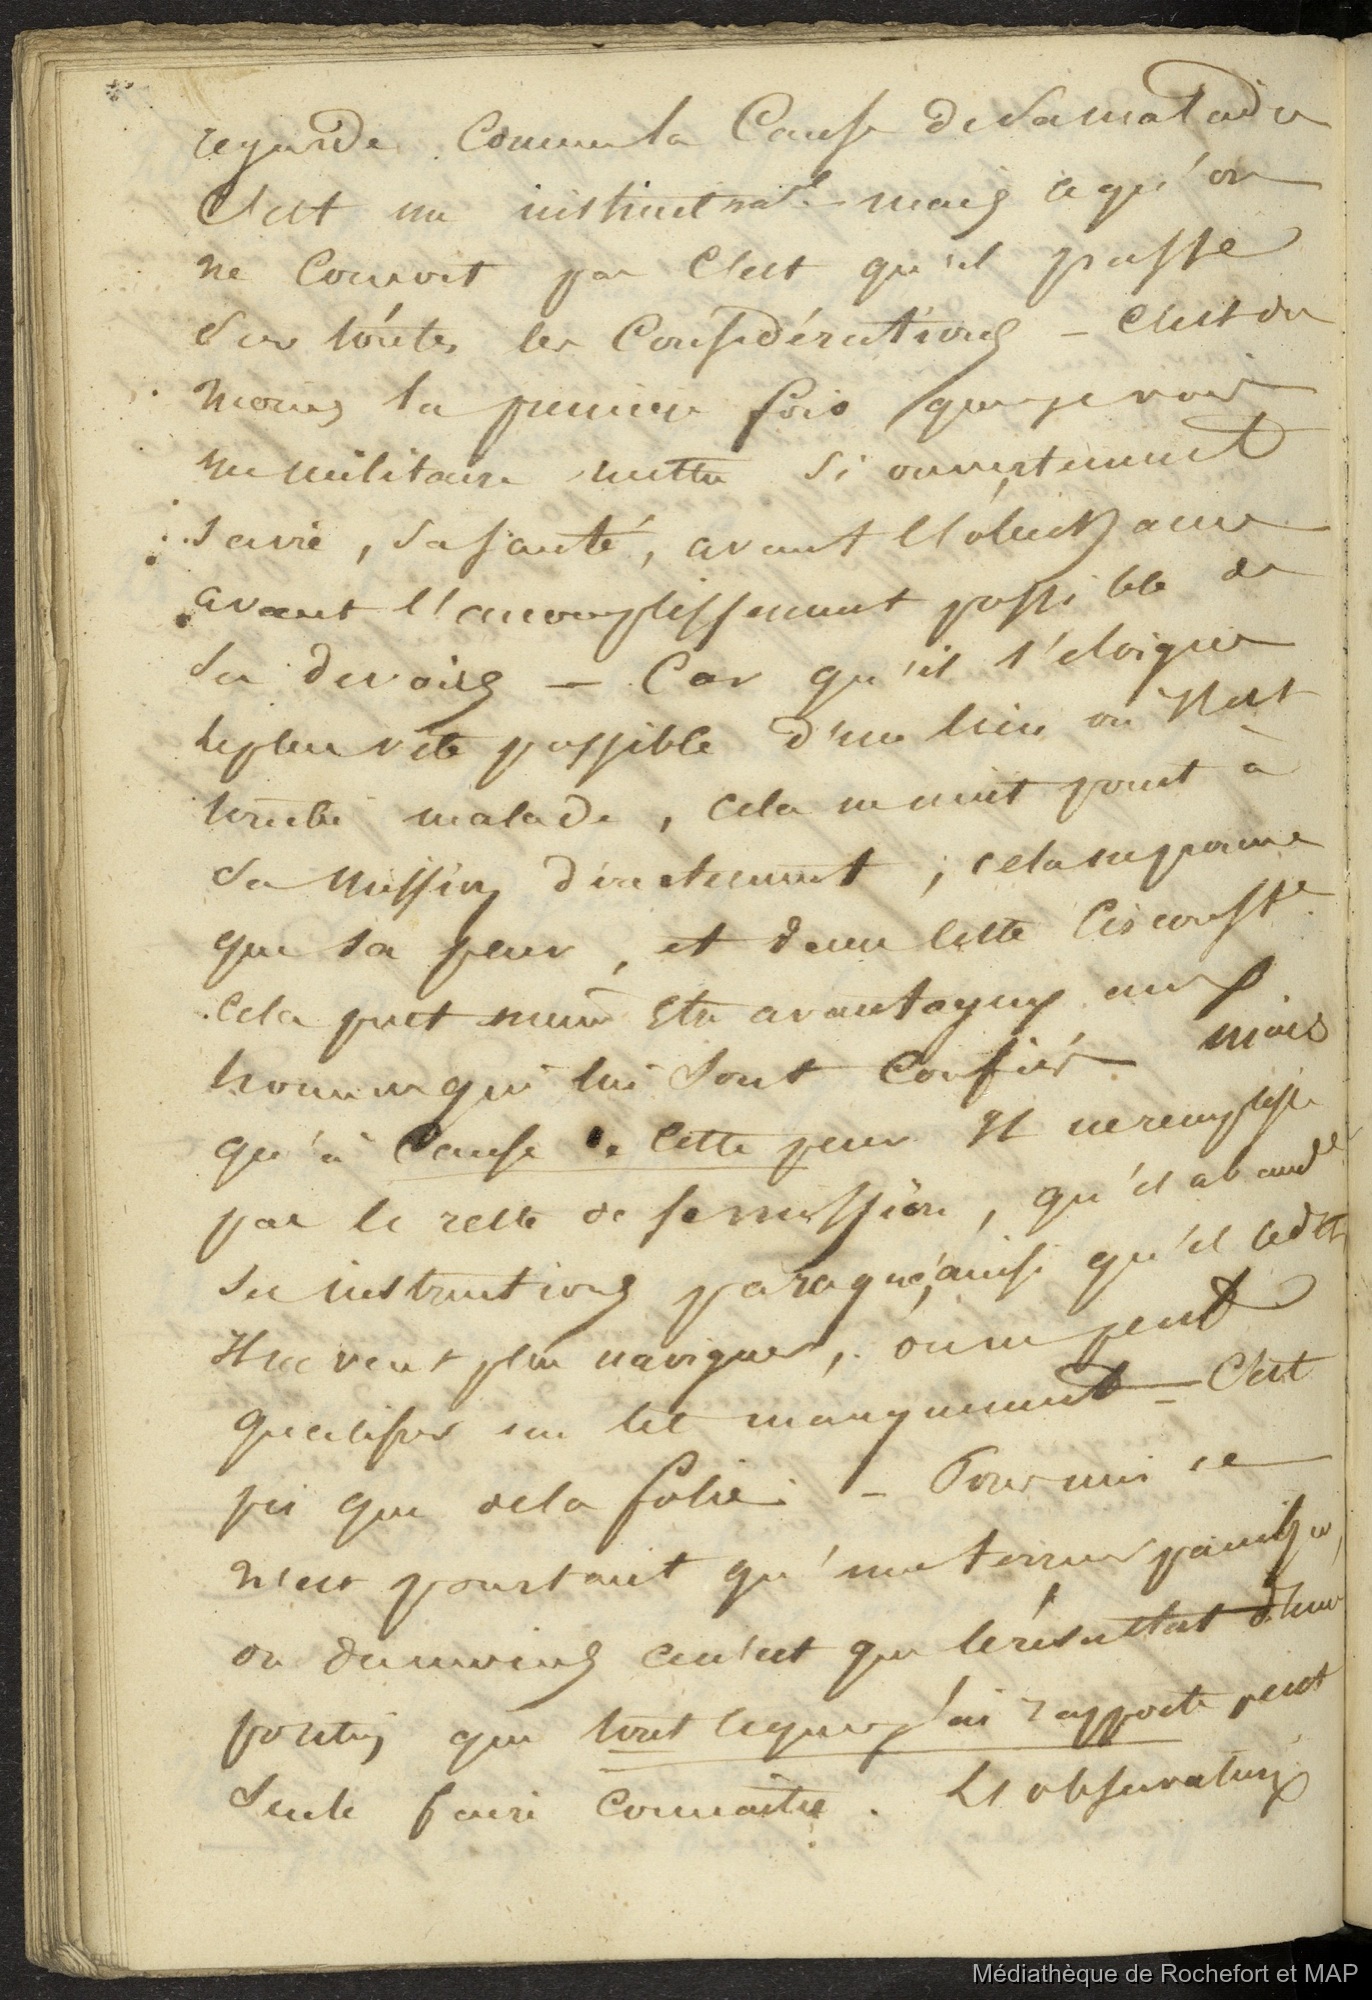 regarde comme la Cause de sa maladie
C'est un instinct nat.el mais ce qu'on
ne Conçoit pas C'est qu'il passe
Sur toutes les Considérations – C'est du
moins la première fois que je vois
un militaire mettre si ouvertement
sa vie, sa santé, avant l'obéissance
avant l'accomplissement possible de
Ses devoirs – Car qu'il s'éloigne
le plus vite possible d'un lieu où Il est
tombé malade, cela ne nuit point à
Sa Mission directement, cela ne prouve
que sa peur, et dans Cette Circonst.e
Cela peut même Etre avantageux aux
hommes qui lui sont Confiés mais
qu'à Cause de Cette peur Il ne remplisse
pas le reste de sa mission, qu'il abandne
Ses instructions parce que, ainsi qu'il le dit
Il ne veut plus naviguer, on ne peut
qualifier un tel manquement – C'est
pis que de la folie – Pour moi ce
n'est pourtant qu'une terreur panique,
ou du moins ce n'est que le résultat d'une
position que tout ce que j'ai rapporté peut
Seule faire connaître. Les observations